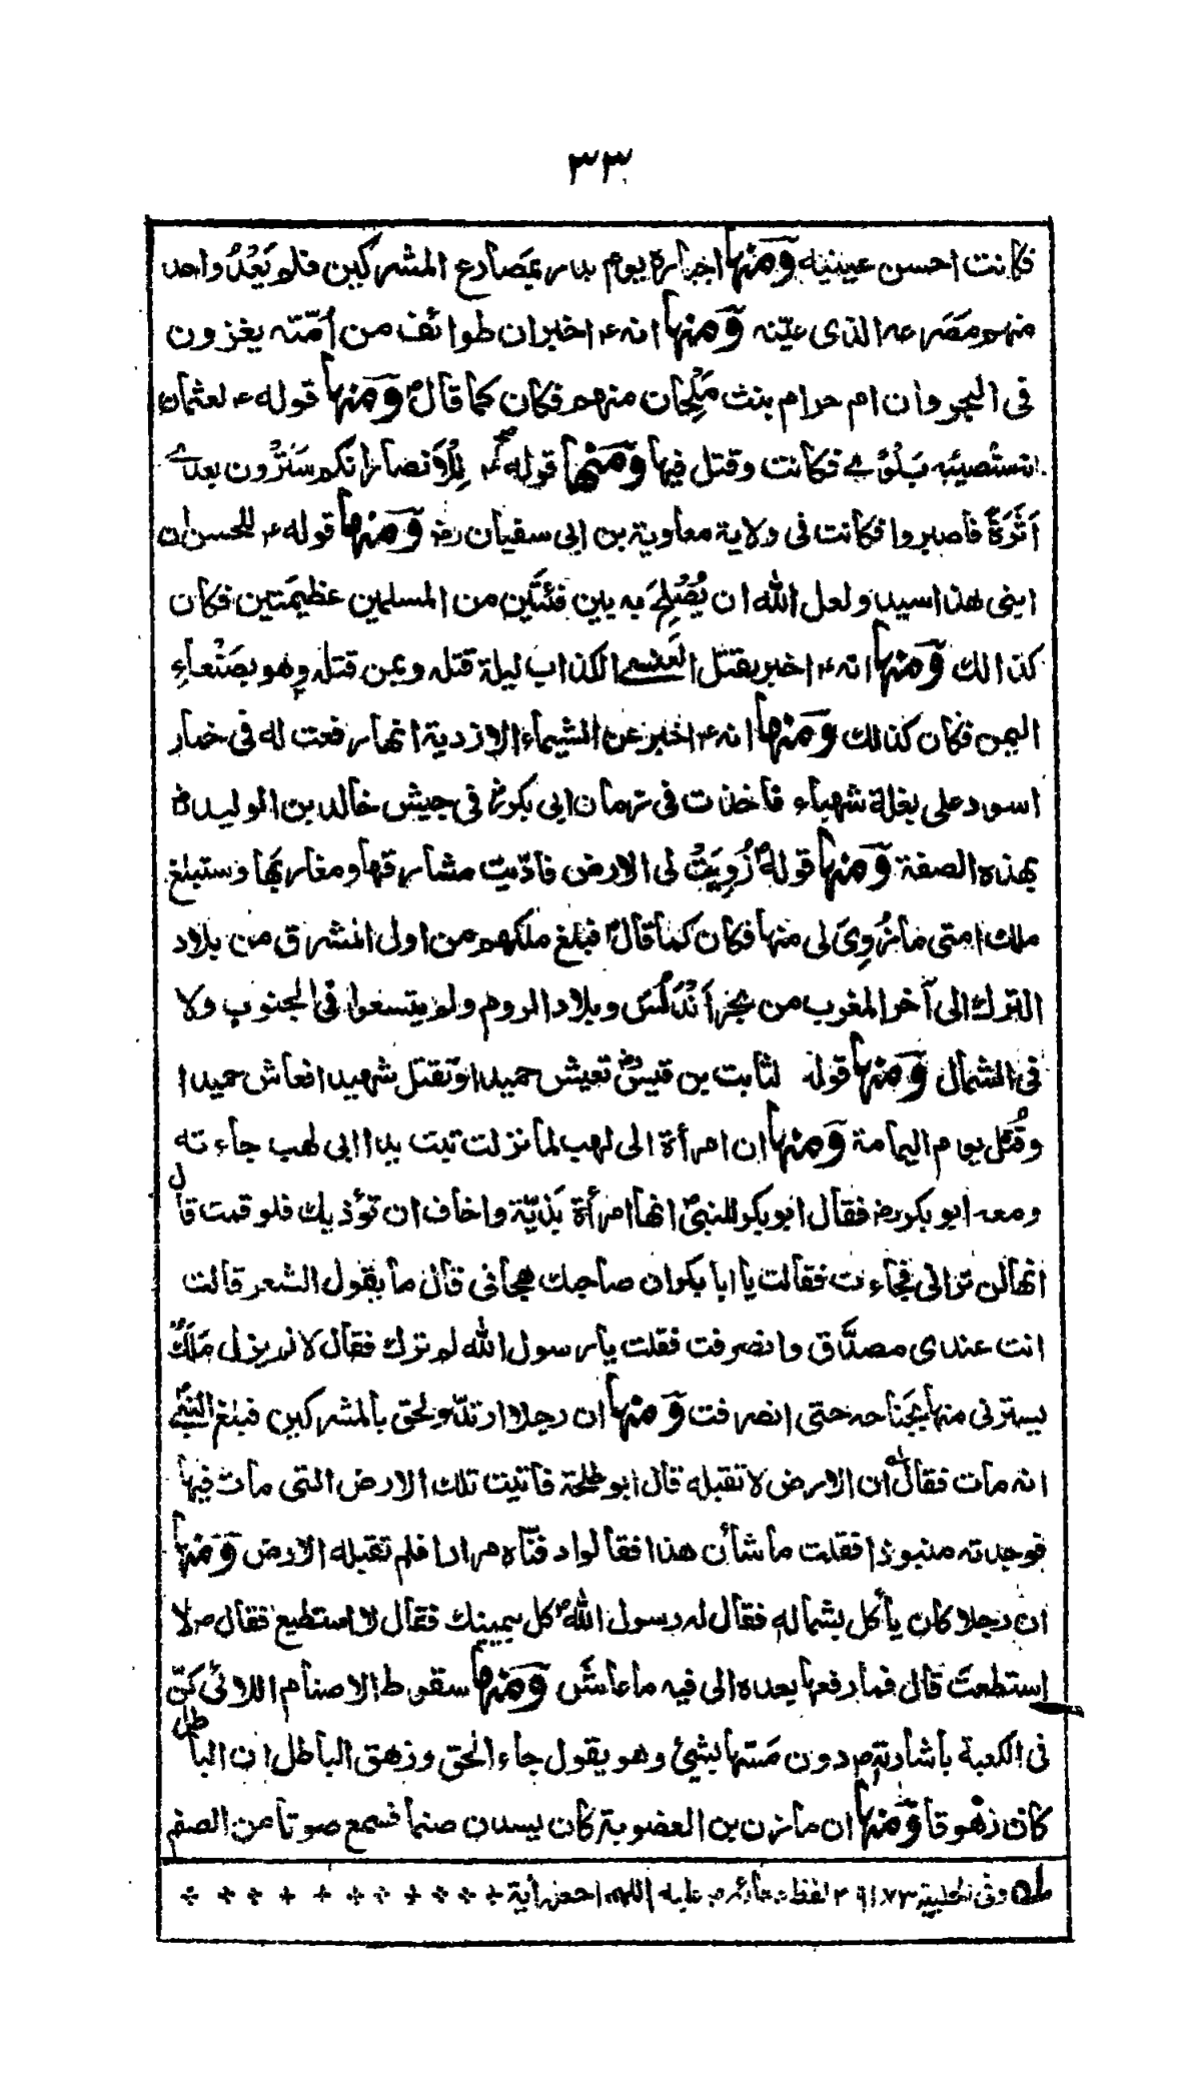 ٣٣
فكانت احسن عينيه وَمنها اخباره يوم بدر بمَصارع المشركين فلم يَعْدُ واحد
منهم مَصَرعه الذى عيّنه وَمنها انه ع اخبر ان طوائف من اُمّته يغزون
فى البحر وان ام حرام بنت مِلْحان منهم فكان كما قال وَمنها قوله ع لعثمان
ستُصيبُه بَلوٰى فكانت وقتل فيها وَمنها قوله ع لِلْاَنصار انكم سَتَرْون بعدى
اَثَرَةً فاصبروا فكانت فى ولاية معاوية بن ابى سفيان رض وَمنها قوله ع للحسن ان
ابنى هذا سيد ولعل الله ان يُصْلِحَ به بين فئتَين من المسلمين عظيمَتين فكان
كذالك وَمنها انه ع اخبر بقتل العنسى الكذاب ليلة قتله وبمن قتله وهو بصَنْعاءِ
اليمن فكان كذلك وَمنها انه ع اخبر عن الشيماء الازدية انها رفعت له فى خمار
اسود على بغلة شهباء فاخذت فى زمان ابى بكر رض فى جيش خالد بن الوليد رض
بهذه الصفة وَمنها قوله زُوِيَتْ لى الارض فاُرّيت مشارقها ومغاربها وستبلغ
ملك امتى ما زُوِىَ لى منها فكان كما قال فبلغ ملكهم من اول المشرق من بلاد
الترك الى آخر المغرب من بحر اَنْدَلُسَ وبلاد الروم ولم يتسعوا فى الجنوب ولا
فى الشمال وَمنها قوله لثابت بن قيس رض تعيش حميدا وتقتل شهيدا فعاش حميدا
وقُتل يوم اليمامة وَمنها ان امرأة ابى لهب لما نزلت تبت يدا ابى لهب جاءته
ومعه ابو بكر رض فقال ابو بكر للنبى انها امرأة بَذيّة واخاف ان تؤذيك فلو قمت قال
انها لن ترانى فجاءت فقالت يا ابا بكر ان صاحبك هجانى قال ما يقول الشعر قالت
انت عندى مصدَّق وانصرفت فقلت يا رسول الله لم ترك فقال لا لم يزل مَلَكٌ
يسترنى منها بجَناحه حتى انصرفت وَمنها ان رجلا ارتدّ ولحق بالمشركين فبلغ النبى
انه مات فقال ان الارض لا تقبله قال ابو طلحة فاتيت تلك الارض التى مات فيها
فوجدته منبوذا فقلت ما شأن هذا فقالوا دفنّاه مرارا فلم تقبله الارض وَمنها
ان رجلا كان يأكل بشماله فقال له رسول الله كل بيمينك فقال لا استطيع فقال ص لا
استطعتَ قال فما رفعها بعده الى فيه ما عاشَ وَمنها سقوط الاصنام اللائى كنّ
فى الكعبة باشارته دون مَسّها بشئ وهو يقول جاء الحق وزهق الباطل ان الباطل
كان زهوقا وَمنها ان مازن بن الغضوبة كان يسدن صنما فسمع صوتا من الصنم
له وفى الحلبية
اللهم اجعل آية